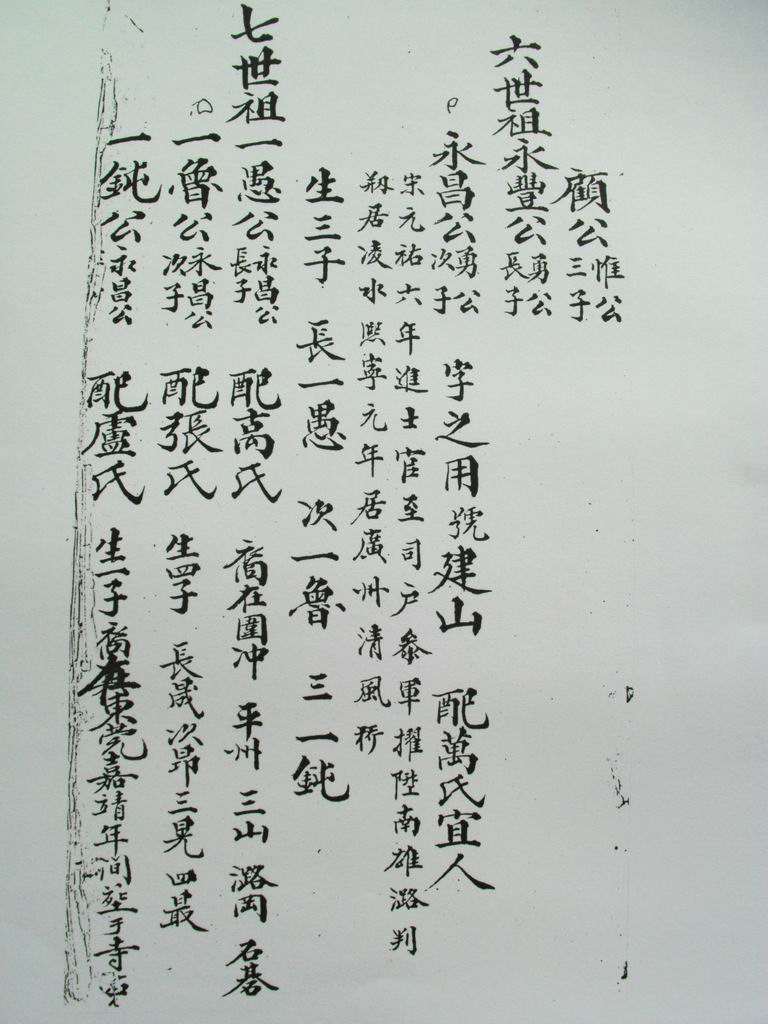 顧公 惟公三子
六世祖永豐公 勇公長子
永昌公 勇公次子 字之用號建山 配萬氏宜人
宋元祐六年進士官至司户叅軍擢陞南雄潞判
初居凌水熙寧元年居廣州清風𣂏
生三子 長一愚 次一魯 三一鈍
七世祖一愚公 永昌公長子 配高氏 裔在圍冲 平州 三山 潞岡 石碁
一魯公 永昌公次子 配張氏 生四子 長晟次昂三晃四最
一鈍公 永昌公 配盧氏 生一子裔在東莞嘉靖年間塟于寺